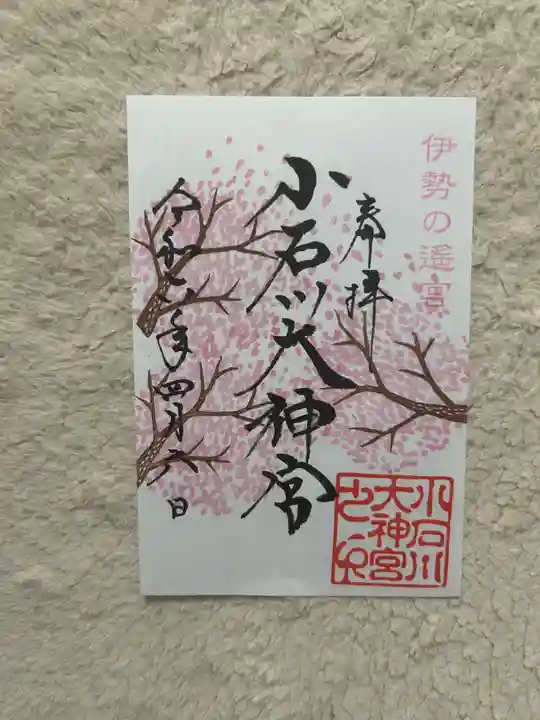 伊勢の遥宮
奉拝
小石川大神宮
令和七年四月六日
小石川
大神宮
之印